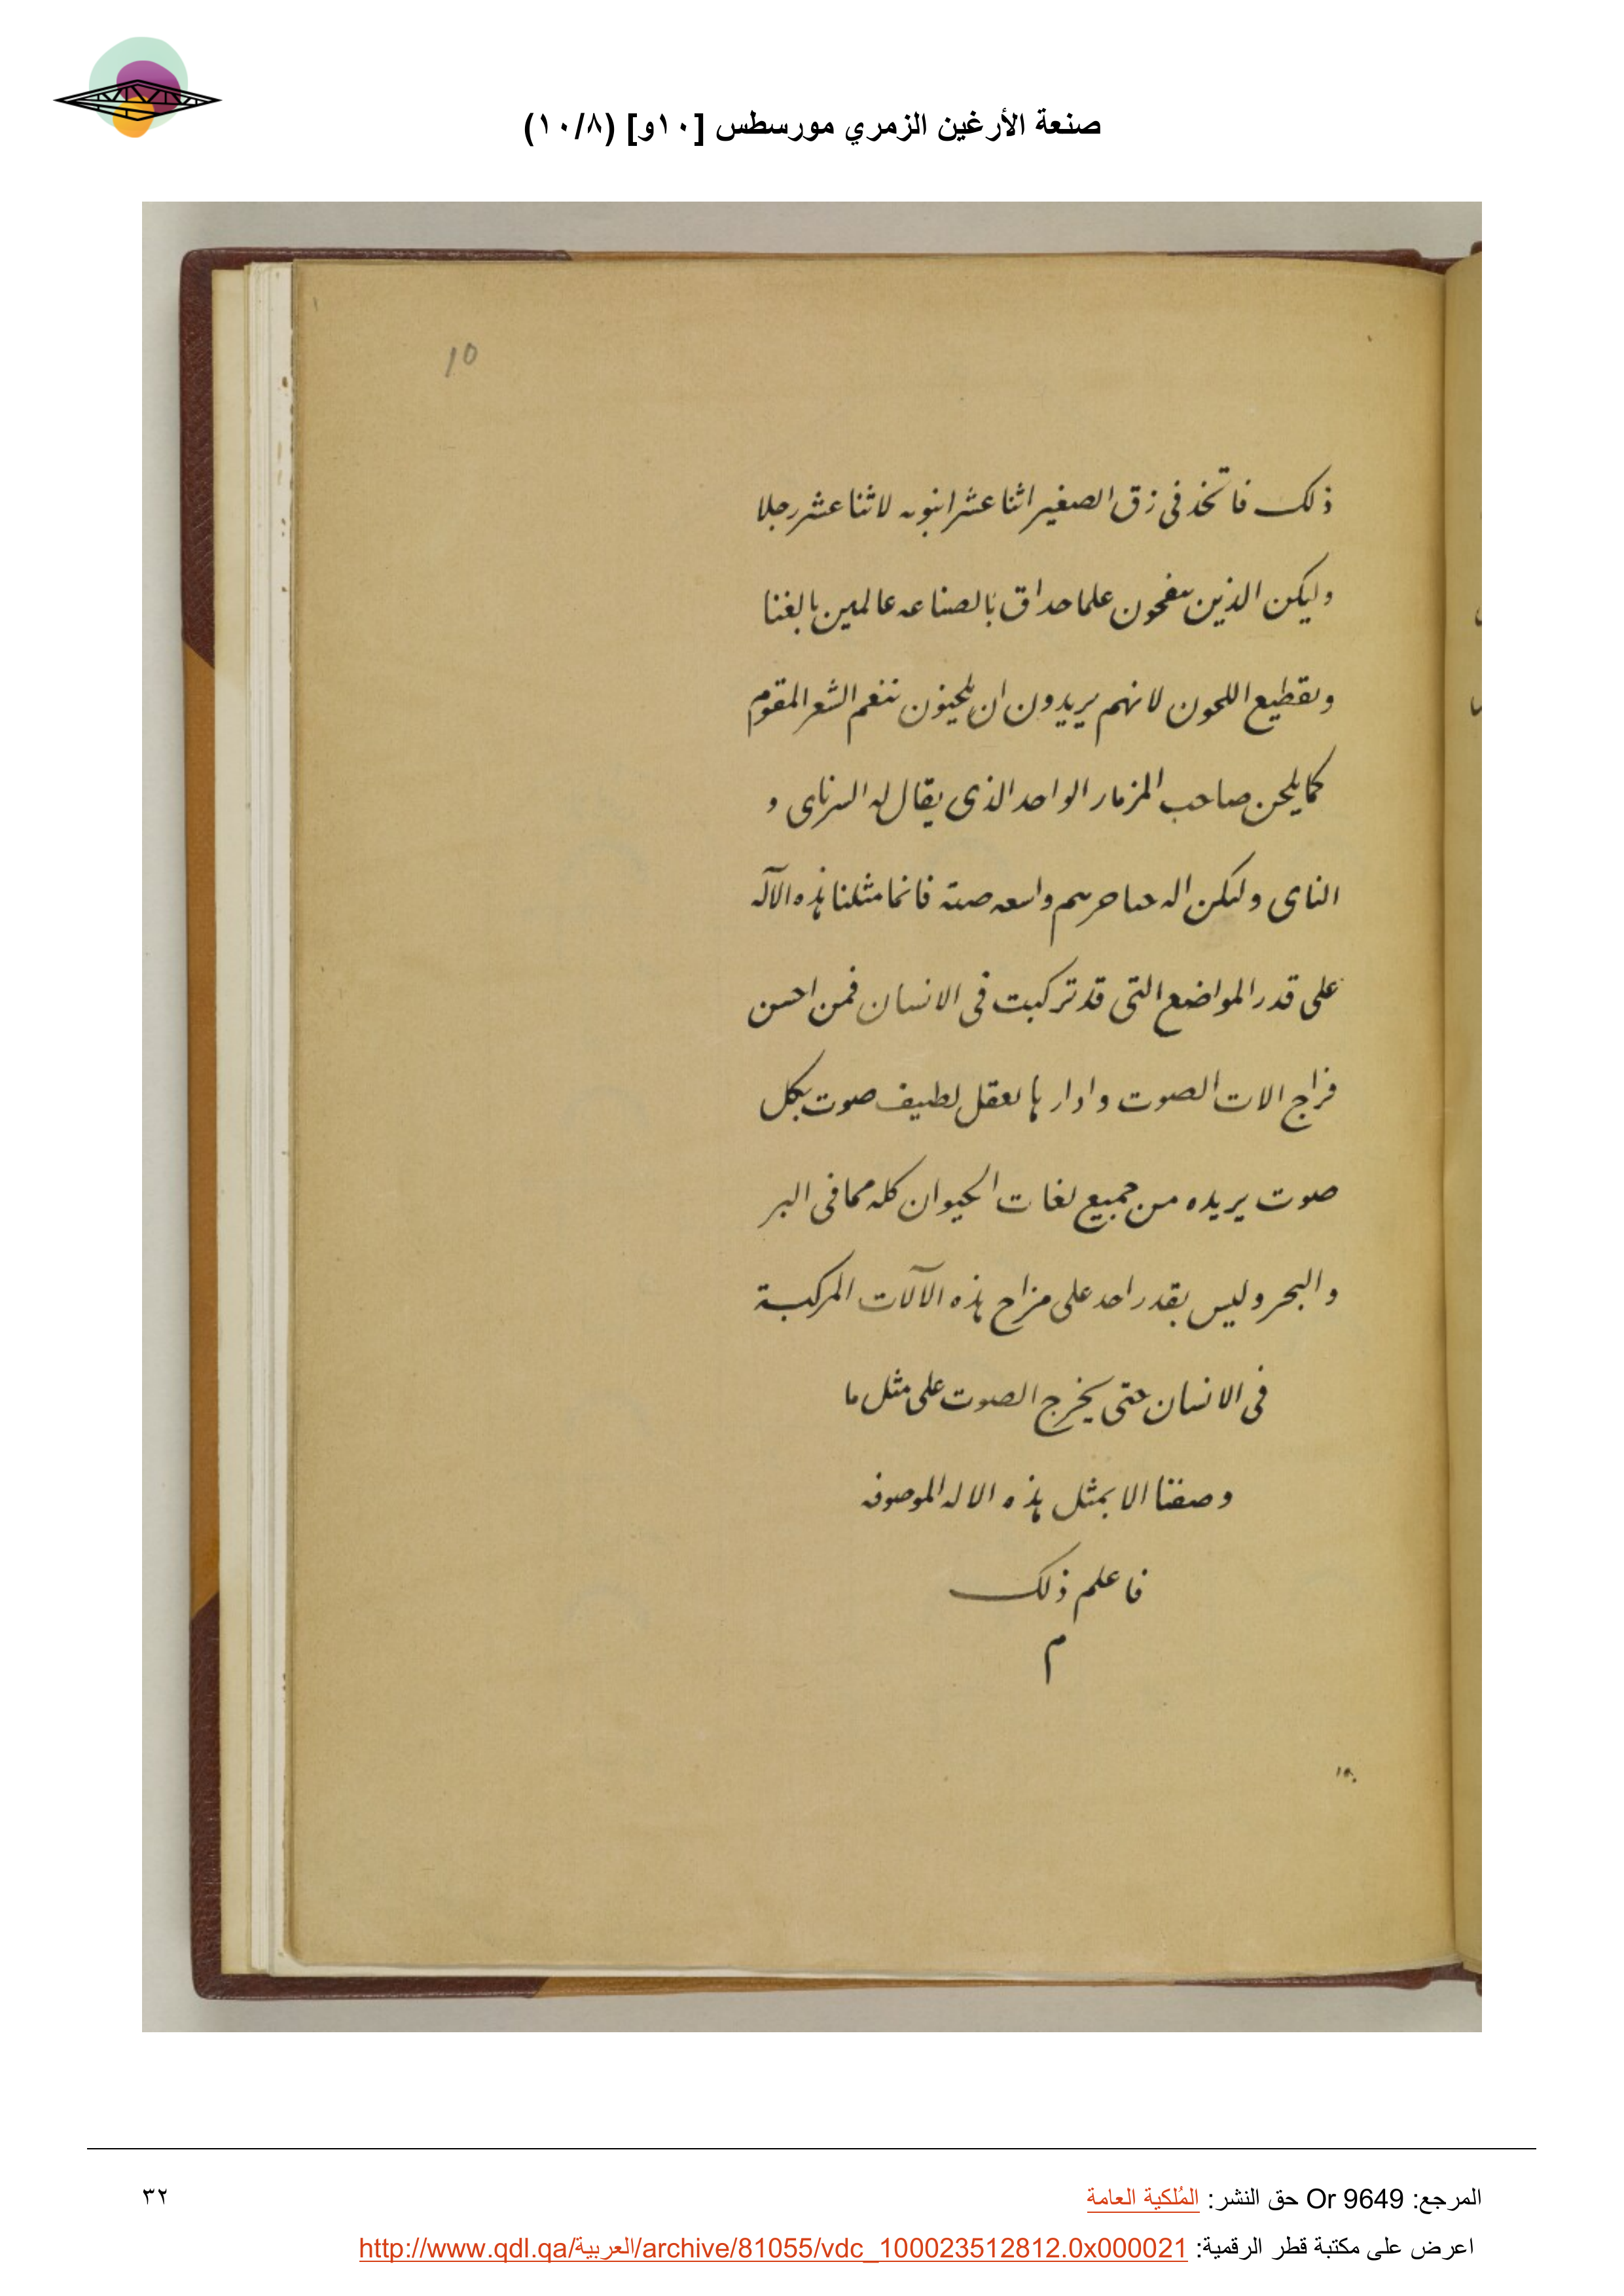 صنعة الأرغين الزمري مورسطس [١٠و] (١٠/٨)
10
ذلك فاتخذ فى زق الصغير اثنا عشر انبوبه لاثنا عشر رجلا
وليكن الذين ينفخون علما حداق بالصناعه عالمين بالغنا
وتقطيع اللحون لانهم يريدون ان يلحنون بنغم الشعر المقوم
كما يلحن صاحب المزمار الواحد الذى يقال له السرناى و
الناى وليكن واسعه فانما مثلنا هذه الآله
على قدر المواضع التى قد تركبت فى الانسان فمن احسن
مزاج الات الصوت وادارها بعقل لطيف صوت بكل
صوت يريده من جميع لغات الحيوان كله مما فى البر
والبحر وليس يقدر احد على مزاج هذه الآلات المركبة
فى الانسان حتى يخرج الصوت على مثل ما
وصفنا الا بمثل هذه الاله الموصوفه
فاعلم ذلك
م
المرجع: Or 9649 حق النشر: المُلكية العامة
٣٢
اعرض على مكتبة قطر الرقمية: http://www.qdl.qa/العربية/archive/81055/vdc_100023512812.0x000021